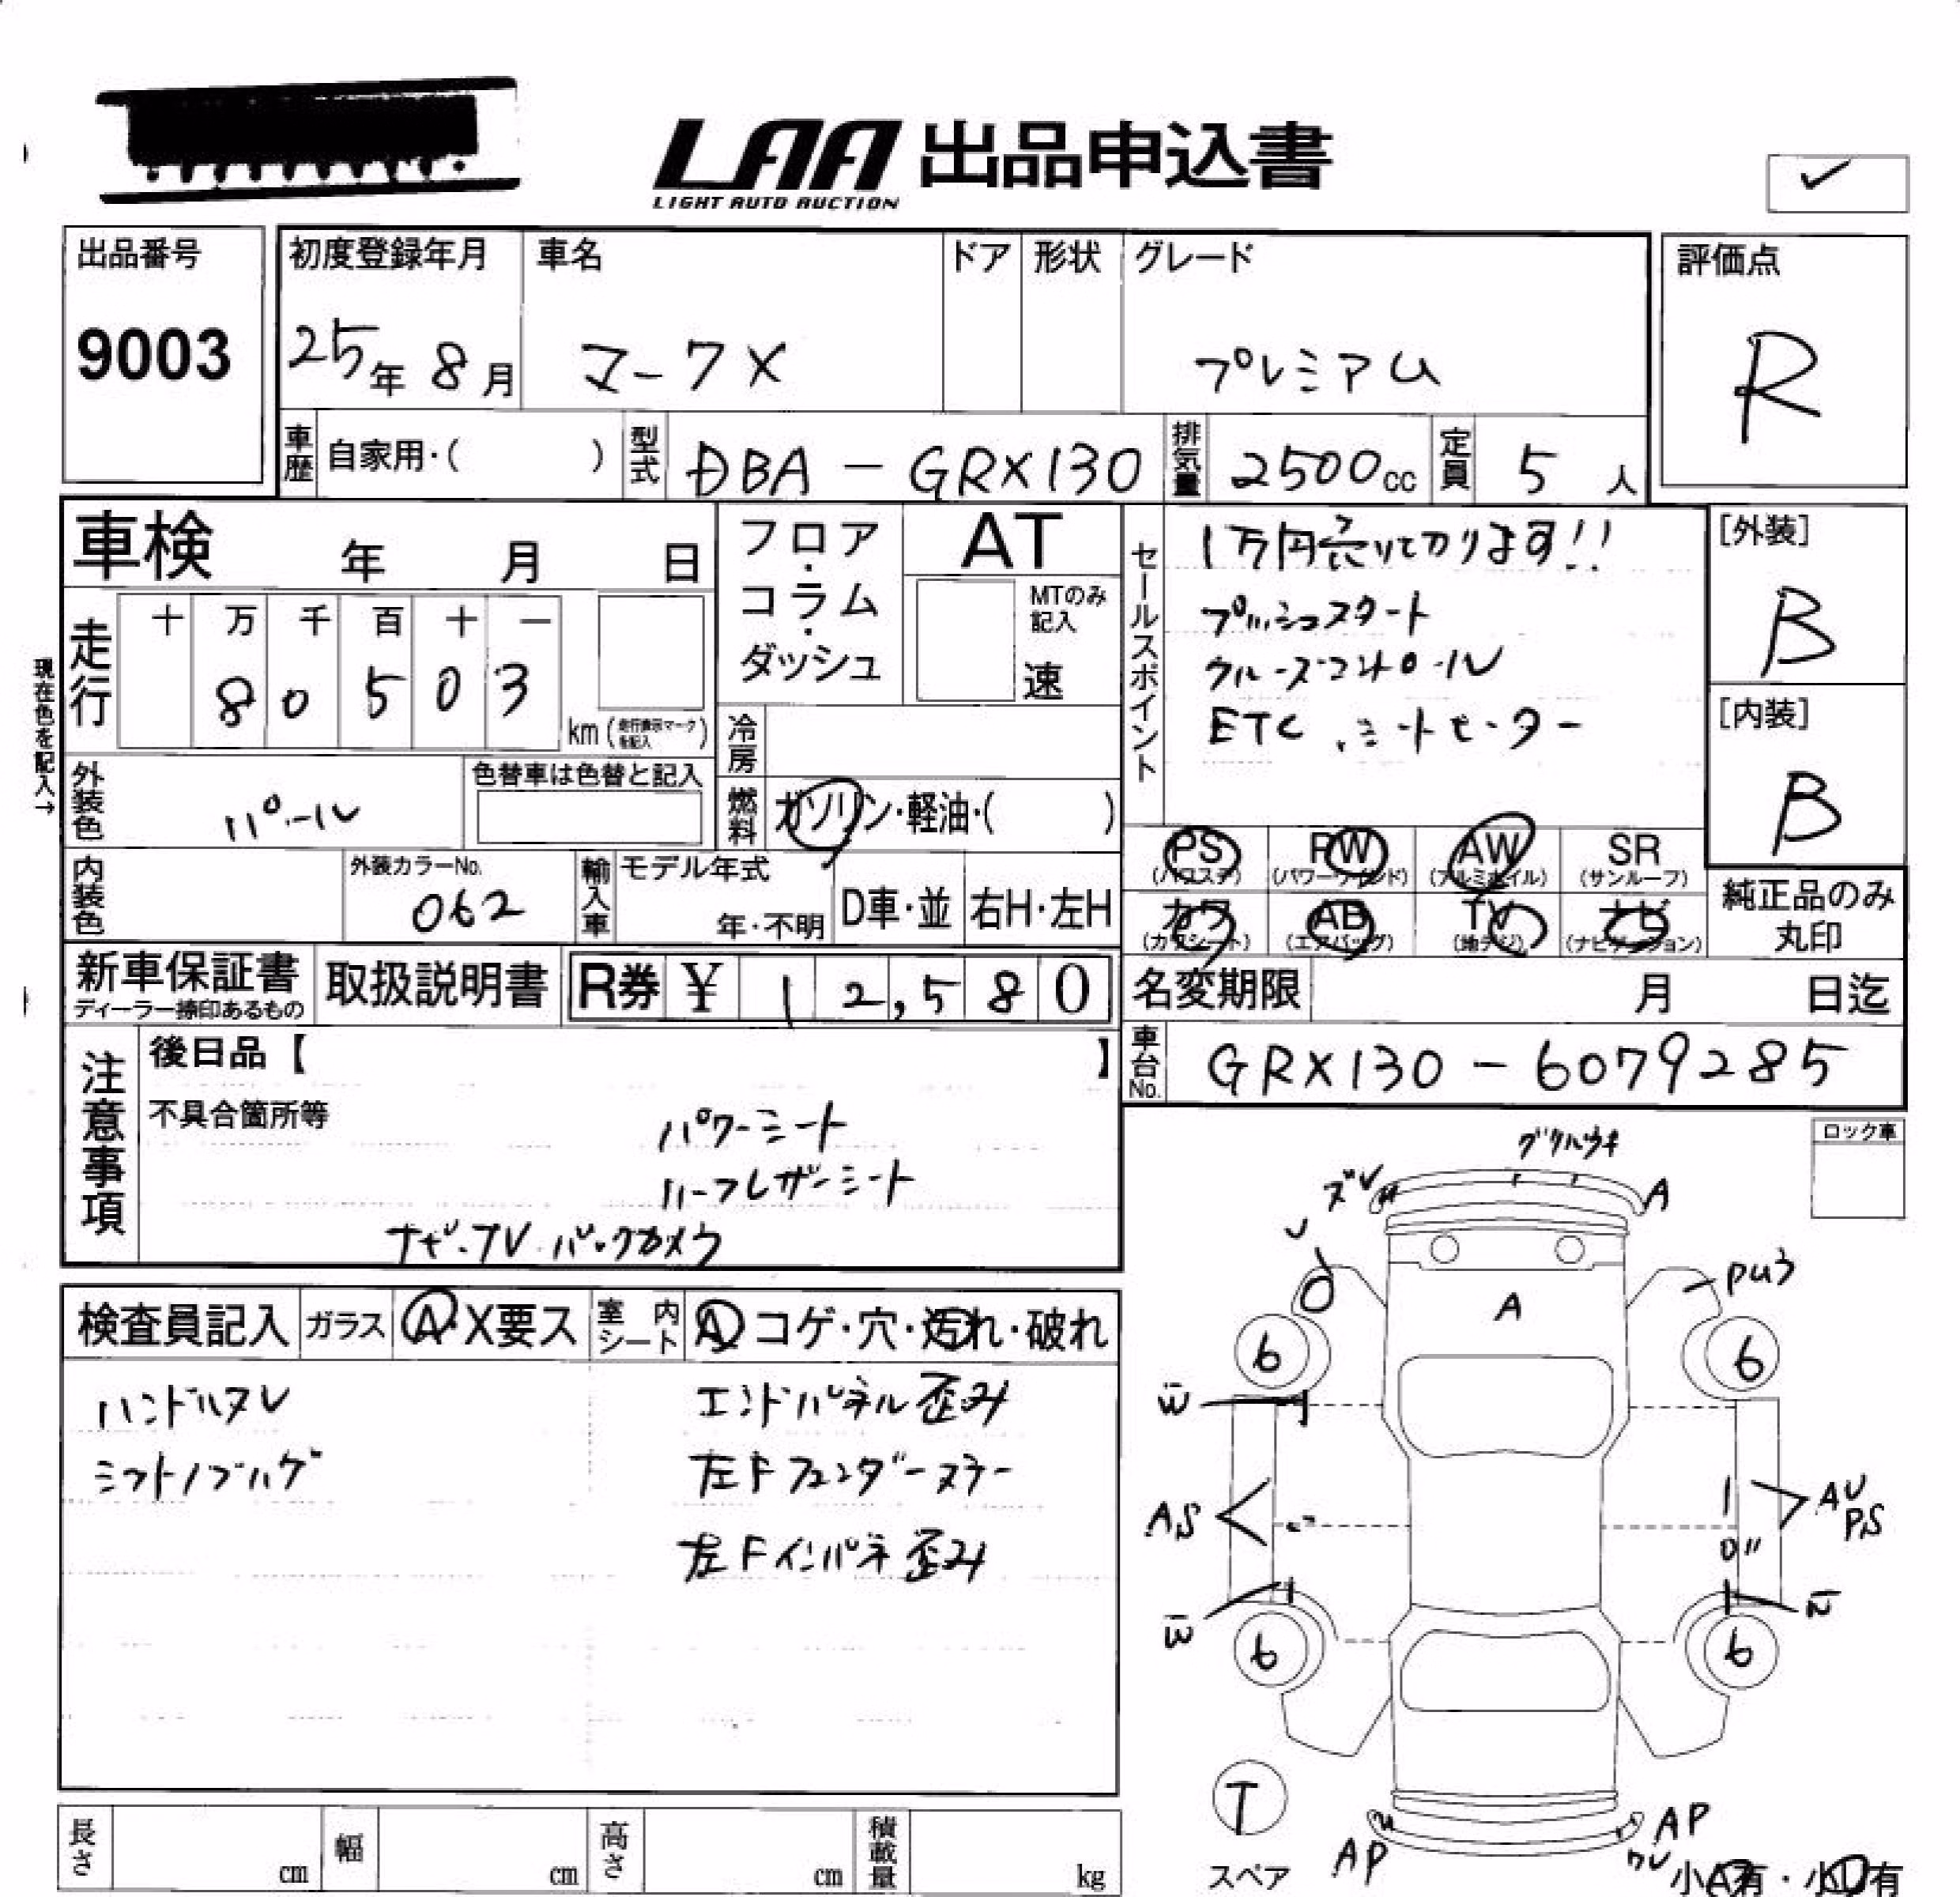 LAA 出品申込書
LIGHT AUTO AUCTION
出品番号
9003
初度登録年月
25年 8月
車名
マークX
ドア
形状
グレード
プレミアム
評価点
R
車歴 自家用・( )
型式 DBA - GRX130
排気量 2500cc
定員 5人
車検 年 月 日
フロア・コラム・ダッシュ
AT
MTのみ記入
速
セールスポイント
1万円売り切ります!!
プッシュスタート
クルーズコントロール
ETC、シートヒーター
[外装]
B
[内装]
B
現在色を記入→
走行
十 万 千 百 十 一
8 0 5 0 3
km(走行表示マークを記入)
冷房
外装色 パール
色替車は色替と記入
燃料 ガソリン・軽油・( )
PS
RW
AW
SR
(パワステ)
(パワーウインド)
(アルミホイル)
(サンルーフ)
カワ
AB
TV
ナビ
(カワシート)
(エアバッグ)
(地デジ)
(ナビゲーション)
純正品のみ丸印
内装色
外装カラーNo.
062
輸入車
モデル年式
年・不明
D車・並
右H・左H
新車保証書
ディーラー捺印あるもの
取扱説明書
R券 ¥ 12,580
名変期限 月 日迄
車台No. GRX130 - 6079285
注意事項
後日品【 】
不具合箇所等
パワーシート
ハーフレザーシート
ナビ・TV・バックカメラ
ロック車
検査員記入
ガラス
A・X要ス
室内シート
A コゲ・穴・汚れ・破れ
ハンドルスレ
シフトノブハゲ
エンドパネル歪み
左Fフェンダーステー
左Fインパネ歪み
ズレ
A
A
PU3
6
6
W
AS
AU
PS
W
6
6
T
スペア
AP
AP
ワレ
小A有・小U有
長さ cm
幅 cm
高さ cm
積載量 kg